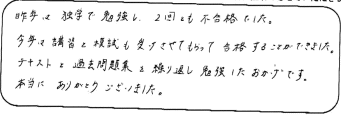 昨年は 独学で勉強し、2回とも不合格でした。
今年は 講習と模試も受けさせてもらって 合格することができました。
テキストと過去問題集を繰り返し勉強したおかげです。
本当に ありがとうございました。